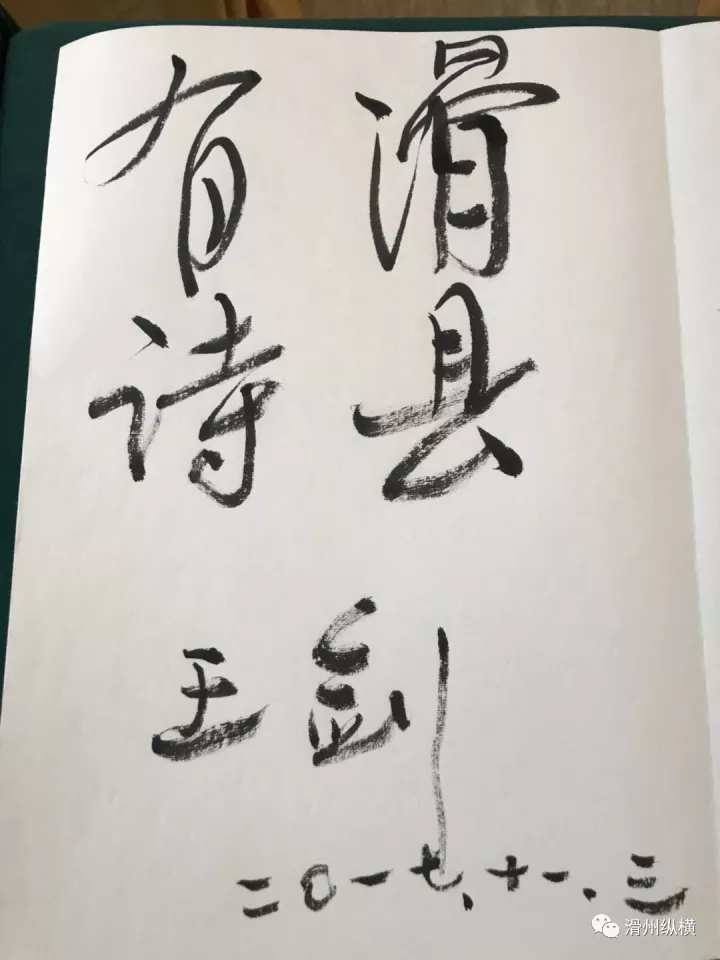 滑县
有诗
王剑
二〇一七、十一、三
滑州纵横